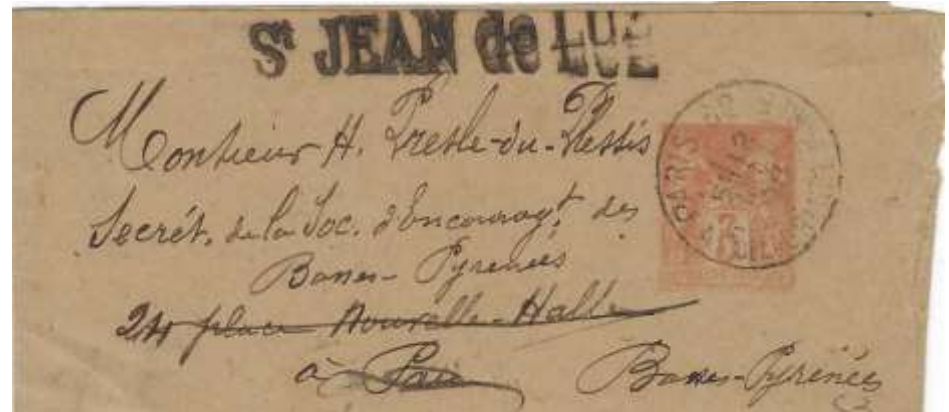 St JEAN de LUZ
Monsieur H. Presle-du-Plessis
Secrét. de la Soc. d'Encouragt. des
Basses-Pyrénées
24 place Nouvelle-Halle
à Pau Basses-Pyrénées
PARIS